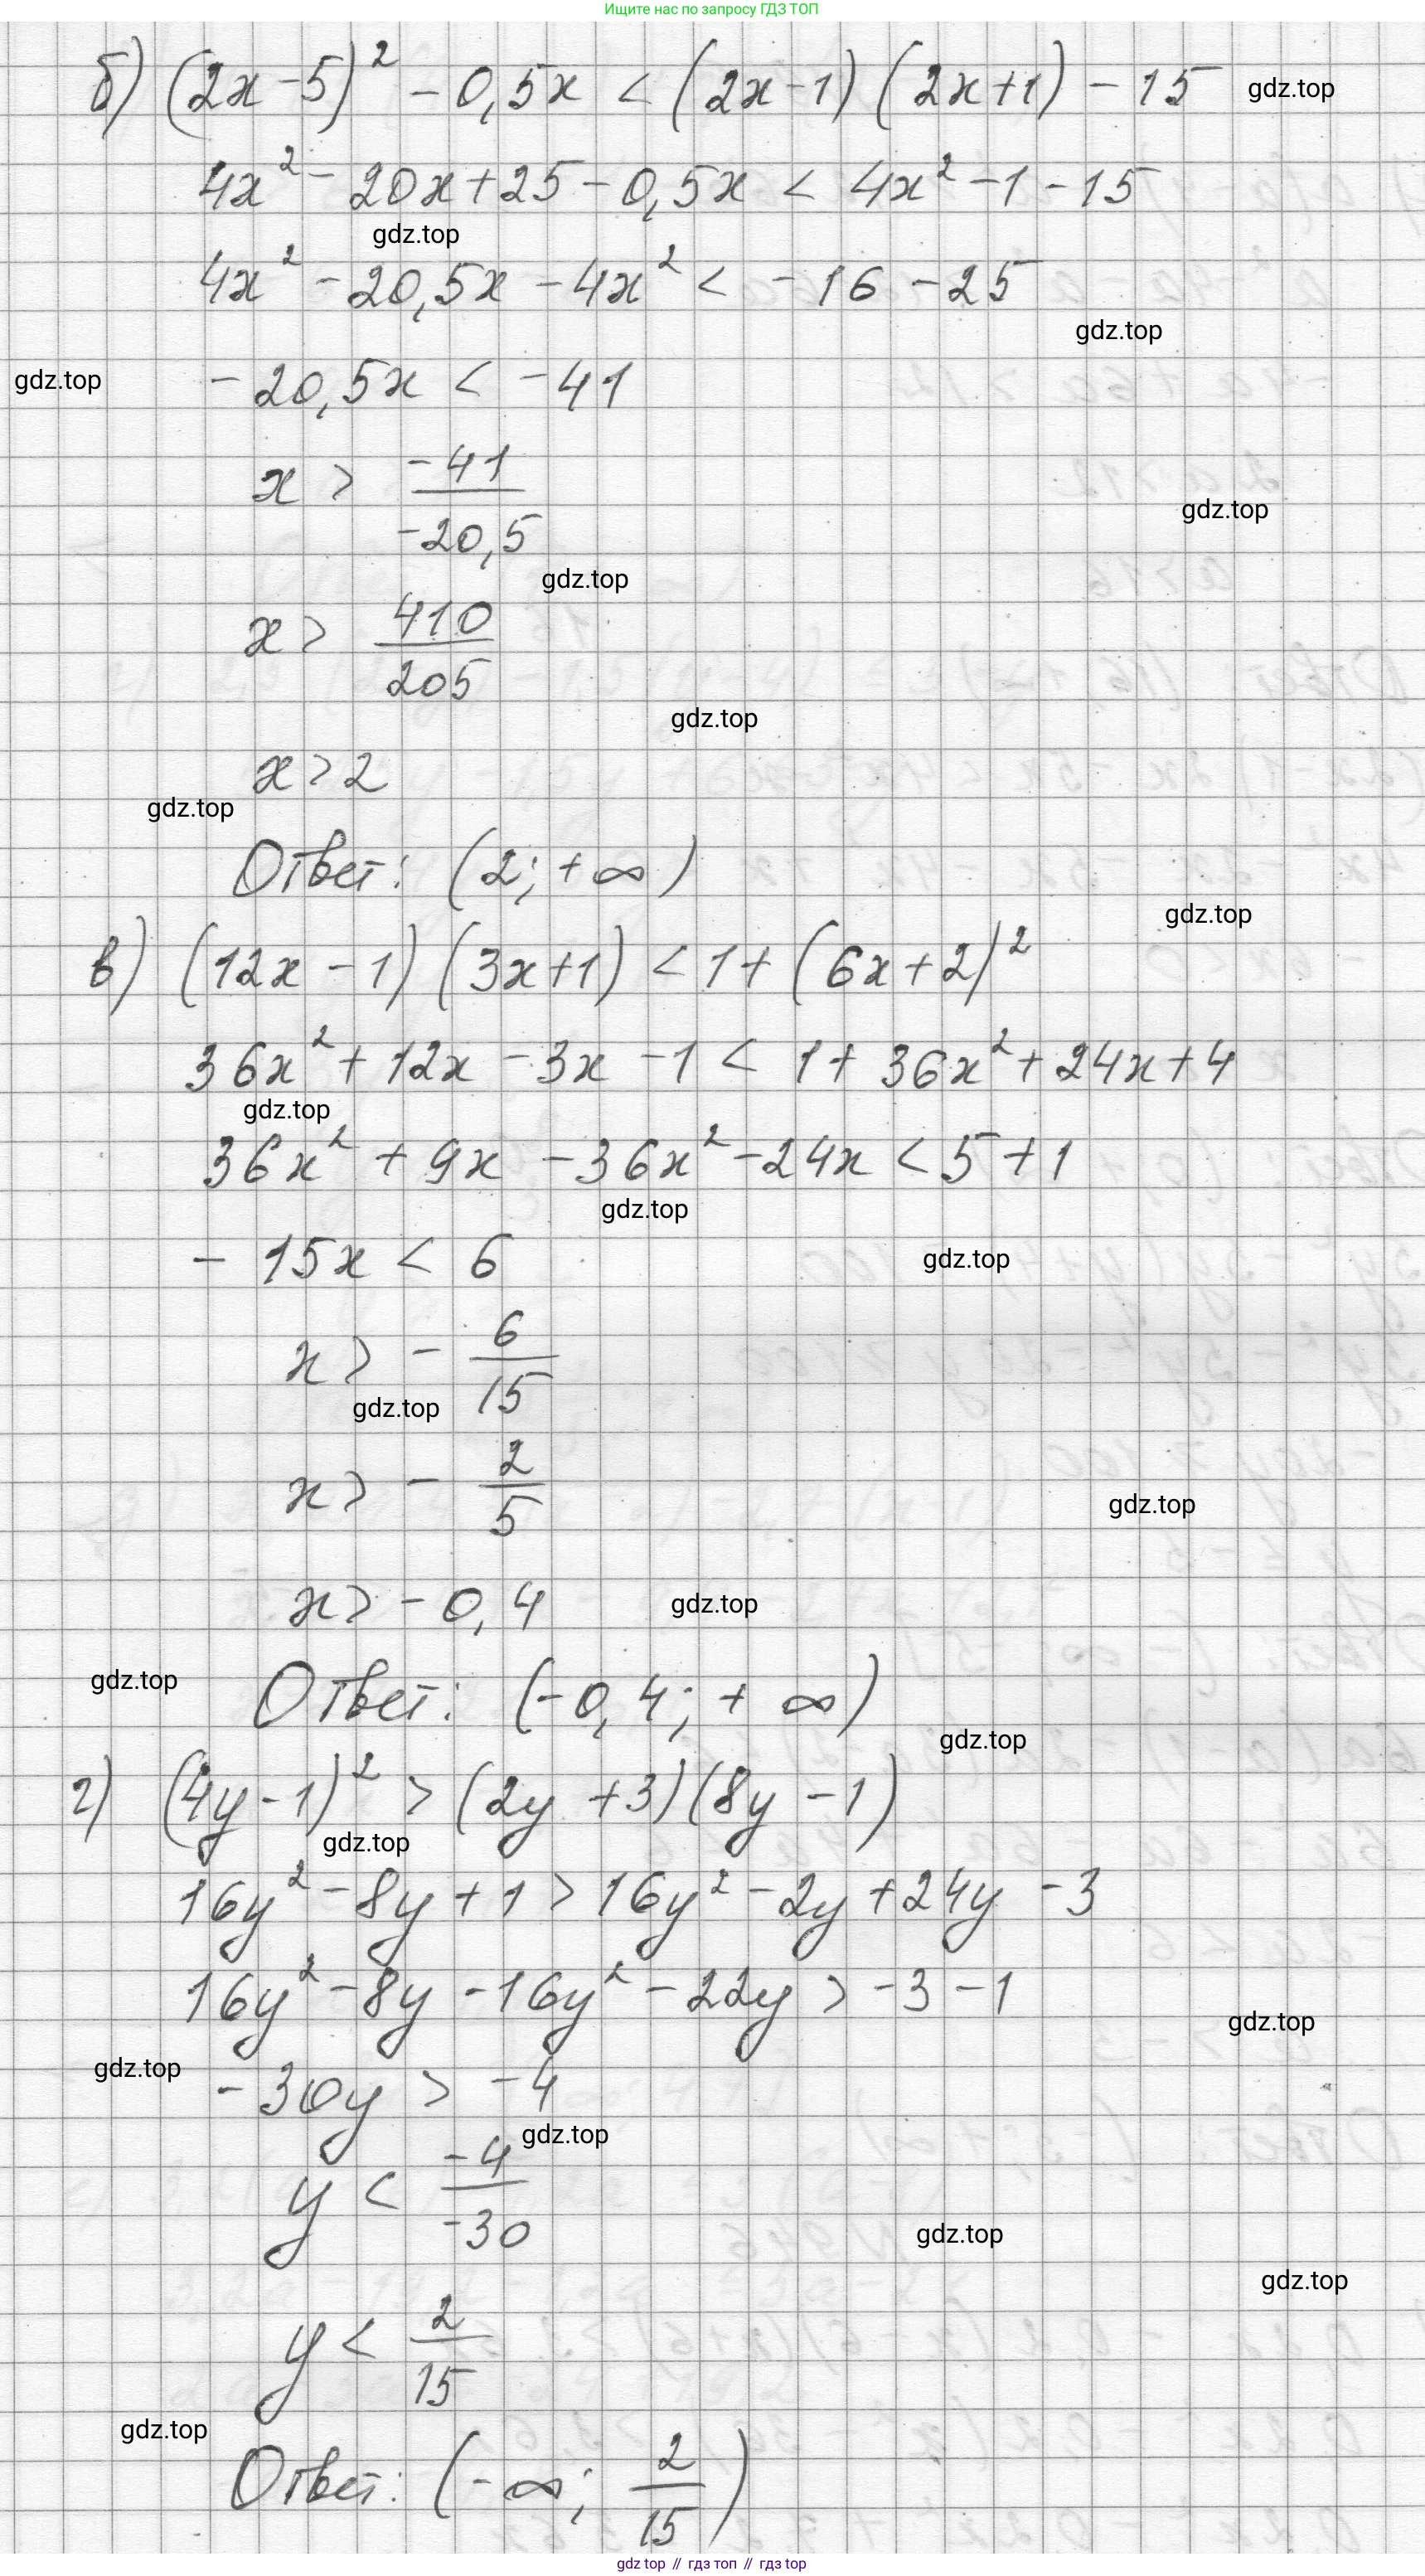 Ищите нас по запросу ГДЗ ТОП
б) (2x-5)² - 0,5x < (2x-1)(2x+1) - 15
gdz.top
4x² - 20x + 25 - 0,5x < 4x² - 1 - 15
gdz.top
4x² - 20,5x - 4x² < -16 - 25
gdz.top
gdz.top
-20,5x < -41
x > -41/-20,5
gdz.top
gdz.top
x > 410/205
gdz.top
x > 2
gdz.top
Ответ: (2; +∞)
gdz.top
в) (12x - 1)(3x+1) < 1 + (6x+2)²
36x² + 12x - 3x - 1 < 1 + 36x² + 24x + 4
gdz.top
36x² + 9x - 36x² - 24x < 5 + 1
gdz.top
- 15x < 6
gdz.top
x > - 6/15
gdz.top
x > - 2/5
gdz.top
x > -0,4
gdz.top
gdz.top
Ответ: (-0,4; +∞)
gdz.top
г) (4y-1)² > (2y+3)(8y-1)
gdz.top
16y² - 8y + 1 > 16y² - 2y + 24y - 3
16y² - 8y - 16y² - 22y > -3 - 1
gdz.top
gdz.top
-30y > -4
gdz.top
y < -4/-30
gdz.top
gdz.top
y < 2/15
gdz.top
Ответ: (-∞; 2/15)
gdz top // гдз топ // гдз top